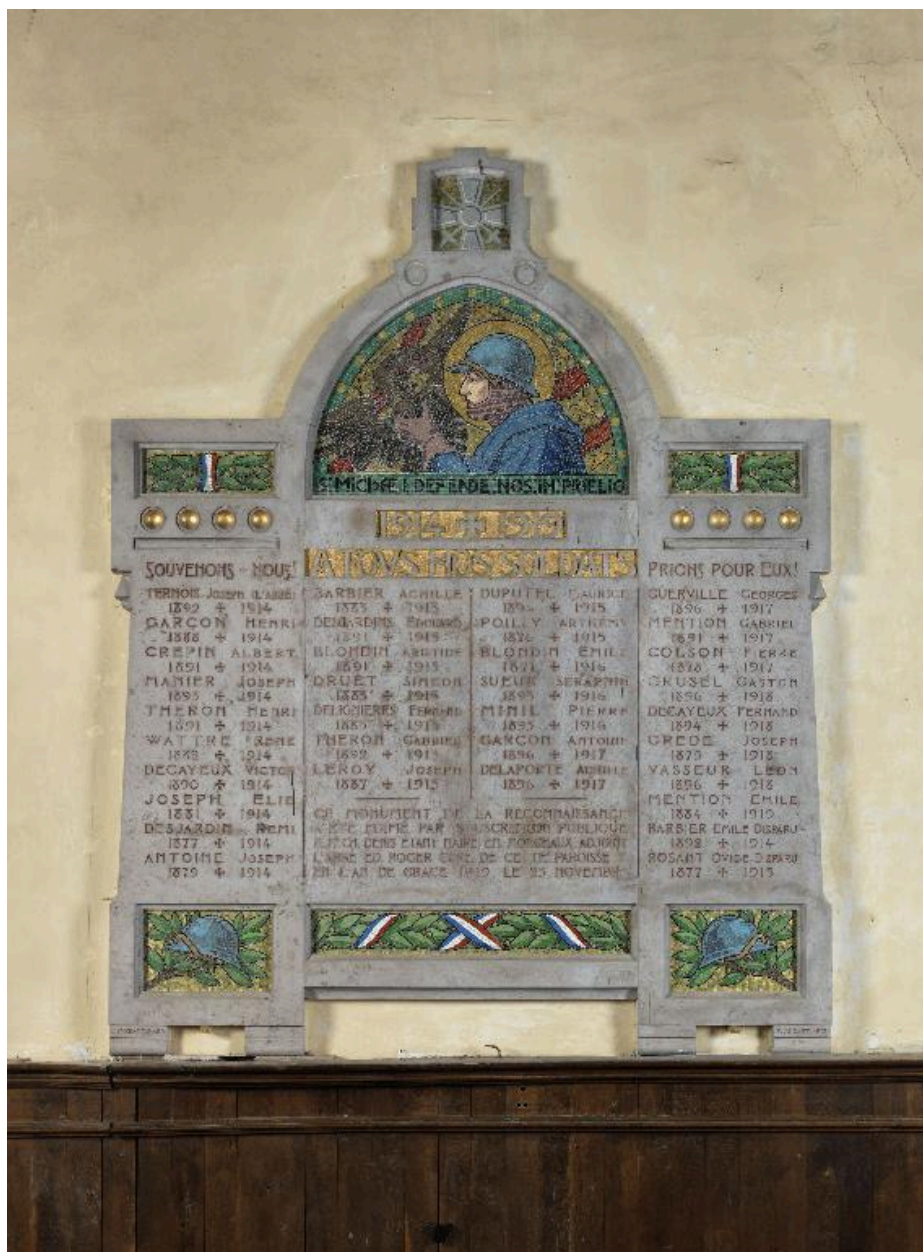 S. MICHAEL DEFENDE NOS IN PRŒLIO
1914 + 1919
A NOVS FILS SOLDATS
SOUVENONS-NOUS!
TERNOIS JOSEPH (L'ABBÉ)
1892 + 1914
GARÇON HENRI
1888 + 1914
CREPIN ALBERT
1891 + 1914
MANIER JOSEPH
1893 + 1914
THERON HENRI
1891 + 1914
WATTRE RENE
1888 + 1914
DECAYEUX VICTOR
1890 + 1914
JOSEPH ELIE
1881 + 1914
DESJARDIN REMI
1877 + 1914
ANTOINE JOSEPH
1879 + 1914
BARBIER ACHILLE
1883 + 1915
DESJARDINS EDOUARD
1891 + 1915
BLONDIN ARISTIDE
1891 + 1915
DRUET SIMEON
1883 + 1915
DELIGNIERES FERNAND
1885 + 1915
THERON GABRIEL
1892 + 1915
LEROY JOSEPH
1887 + 1915
DUPUTEL MAURICE
1894 + 1915
POILLY ARTHEMY
1876 + 1915
BLONDIN EMILE
1871 + 1916
SUEUR SERAPHIN
1895 + 1916
MINIL PIERRE
1895 + 1916
GARÇON ANTOINE
1896 + 1917
DELAPORTE ACHILLE
1896 + 1917
CE MONUMENT DE LA RECONNAISSANCE
A ÉTÉ ÉDIFIÉ PAR SOUSCRIPTION PUBLIQUE
DENIS ETANT MAIRE, EM. MORGEAUX, ADJOINT
L'ABBE ED. ROGER CURE DE CETTE PAROISSE
EN L'AN DE GRACE 1919, LE 23 NOVEMBRE
PRIONS POUR EUX!
GUERVILLE GEORGES
1896 + 1917
MENTION GABRIEL
1891 + 1917
COLSON PIERRE
1878 + 1917
GRUSEL GASTON
1896 + 1918
DECAYEUX FERNAND
1894 + 1918
GREDE JOSEPH
1879 + 1918
VASSEUR LEON
1896 + 1918
MENTION EMILE
1884 + 1919
BARBIER EMILE DISPARU
1892 + 1914
ROSANT OVIDE DISPARU
1877 + 1915